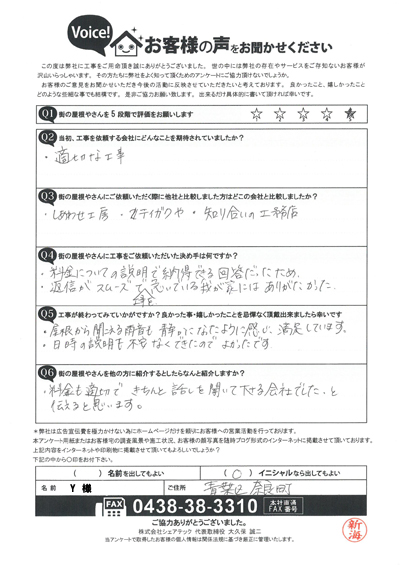 Voice!
お客様の声をお聞かせください
この度は弊社に工事をご用命頂き誠にありがとうございました。世の中には弊社の存在やサービスをご存知ないお客様が
沢山いらっしゃいます。その方たちに弊社をよく知って頂くためのアンケートにご協力頂けないでしょうか。
お客様のご意見をお聞かせいただき今後の活動に反映させていただきたいと考えております。良かったこと、嬉しかったこと
どのような些細な事でも結構です。是非ご協力お願い致します。出来るだけ具体的に書いて頂ければ幸いです。
Q1 街の屋根やさんを5段階で評価をお願いします ☆ ☆ ☆ ☆ ★
Q2 当初、工事を依頼する会社にどんなことを期待されていましたか?
・適切な工事
Q3 街の屋根やさんにご依頼いただく際に他社と比較しました方はどこの会社と比較しましたか?
・しあわせ工房 ・カナイガワや ・知り合いの工務店
Q4 街の屋根やさんに工事をご依頼いただいた決め手は何ですか?
・料金についての説明で納得できる回答だったため。
・返信がスムーズで急いでいる我が家にはありがたかった。
Q5 工事が終わってみていかがですか?良かった事・嬉しかったことを忌憚なく頂戴出来ましたら幸いです
・屋根から聞える雨音も静かになったように感じ、満足しています。
・日時の説明も不安なくできたのでよかったです
Q6 街の屋根やさんを他の方に紹介するとしたらなんと紹介しますか?
・料金も適切できちんと話しを聞いて下さる会社でした、と
伝えると思います。
*弊社は広告宣伝費を極力かけない為にホームページだけを頼りにお客様への営業活動を行っております。
本アンケート用紙またはお客様宅の調査風景や施工状況、お客様の顔写真を随時ブログ形式のインターネットに掲載させて頂いております。
上記内容をインターネットや印刷物に掲載させて頂いてもよろしいでしょうか?
下記の中から〇印をお付け下さい。
( )名前を出してもよい (〇)イニシャルなら出してもよい
名前 Y 様 ご住所 青葉区奈良町
FAX 0438-38-3310 本社直通FAX番号
ご協力ありがとうございました。
株式会社シェアテック 代表取締役 大久保 誠二
当アンケートで取得したお客様の個人情報は関係法規に基づき厳正に管理いたします。
新海